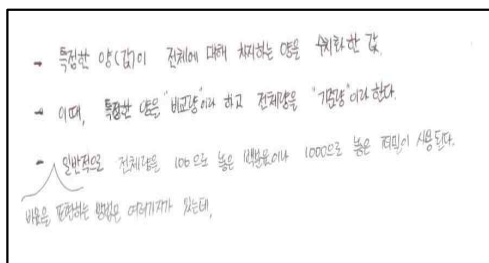 - 특정한 양(값)이 전체에 대해 차지하는 양을 수치화한 값.
- 이때, 특정한 양을 "비교량"이라 하고 전체량을 "기준량"이라 한다.
- 일반적으로 전체량을 100으로 놓은 백분율이나 1000으로 놓은 퍼밀이 사용된다.
비율을 표현하는 방법은 여러가지가 있는데,